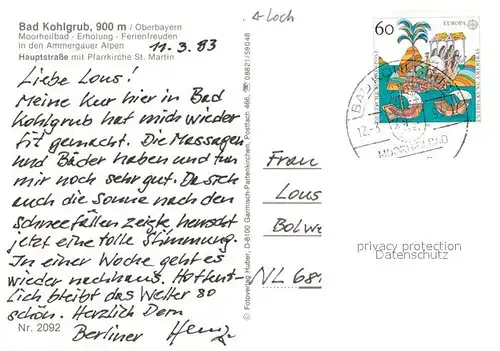 Bad Kohlgrub, 900 m / Oberbayern
Moorheilbad - Erholung - Ferienfreuden
in den Ammergauer Alpen
Hauptstraße mit Pfarrkirche St. Martin
11.3.93
Liebe Lous!
Meine Kur hier in Bad
Kohlgrub hat mich wieder
fit gemacht. Die Massagen
und Bäder haben und tun
mir noch sehr gut. Da sich
auch die Sonne nach den
Schneefällen zeigte herrscht
jetzt eine tolle Stimmung.
In einer Woche geht es
wieder nachhaus. Hoffent-
lich bleibt das Wetter so
schön. Herzlich Dein
Berliner Heinz
Nr. 2092
© Fotoverlag Huber, D-8100 Garmisch-Partenkirchen, Postfach 466, ☎ 08821/59048
Loch
60
EUROPA
DEUTSCHE BUNDESPOST
ENTDECKUNG AMERIKAS
BAD KOHLGRUB
12.-3
MOORHEILBAD
Frau
Lous
Bolwe
NL 681
privacy protection
Datenschutz